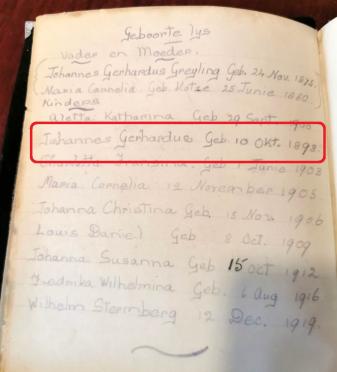 Geboorte lys
Vader en Moeder.
Johannes Gerhardus Greyling Geb. 24 Nov. 1875.
Maria Cornelia. Geb. Kotze 25 Junie 1880.
Kinders
Aletta Katharina Geb 29 Sept
Johannes Gerhardus Geb. 10 Okt. 1898.
Geb. 1 Junie 1903
Maria Cornelia 12 November 1905
Johanna Christina Geb. 15 Nov. 1906
Louis Daniel Geb 8 Oct. 1909
Johanna Susanna Geb 15 Oct 1912
Fredrika Wilhelmina Geb. 6 Aug 1916
Wilhelm Sternberg 12 Dec. 1919.